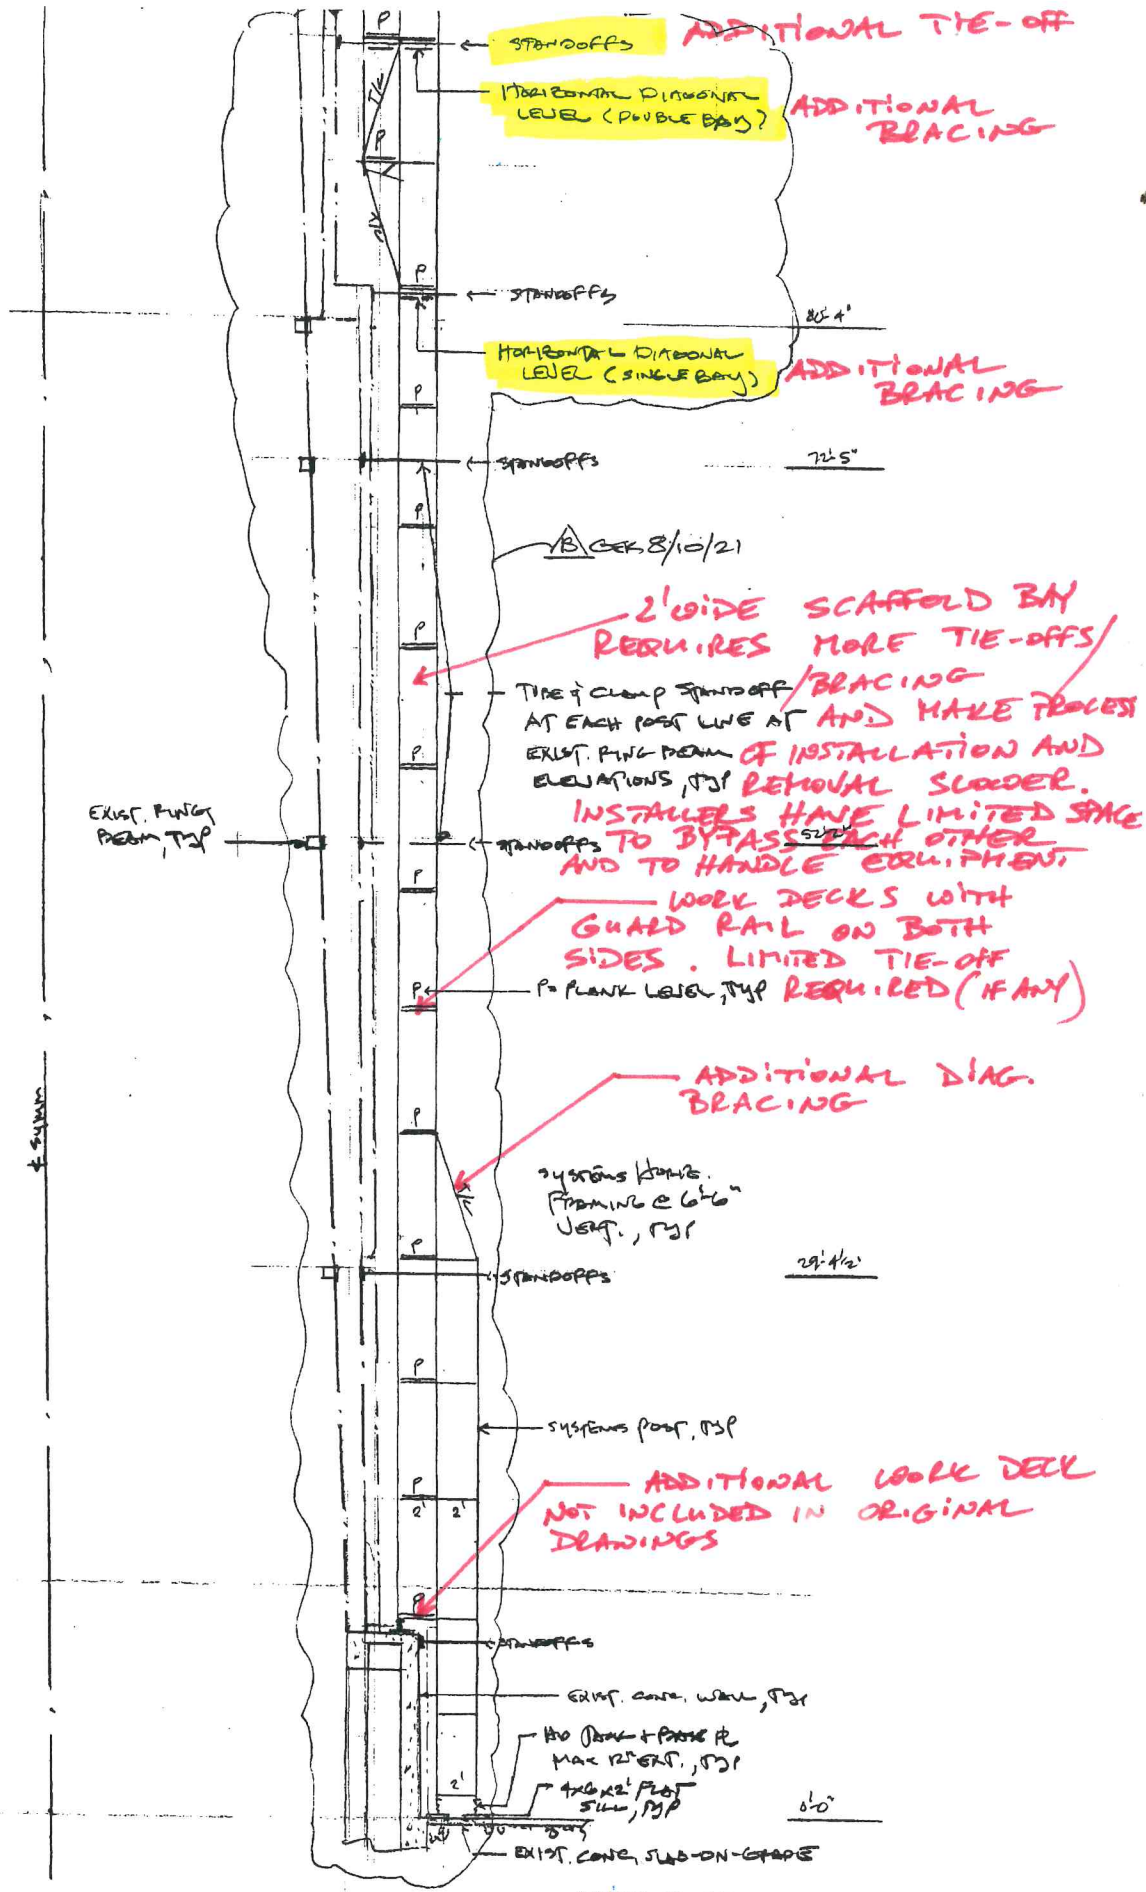 P
STANDOFFS
ADDITIONAL TIE-OFF
HORIZONTAL DIAGONAL
LEVEL (DOUBLE BAY)
ADDITIONAL
BRACING
P
P
STANDOFFS
HORIZONTAL DIAGONAL
LEVEL (SINGLE BAY)
ADDITIONAL
BRACING
P
STANDOFFS
72'-5"
P
B GEK 8/10/21
2' WIDE SCAFFOLD BAY
REQUIRES MORE TIE-OFFS/
BRACING
AND MAKE PROCESS
OF INSTALLATION AND
REMOVAL SLOWER.
INSTALLERS HAVE LIMITED SPACE
TO BYPASS EACH OTHER
AND TO HANDLE EQUIPMENT
P
TUBE & CLAMP STANDOFF
AT EACH POST LINE AT
EXIST. RING BEAM
ELEVATIONS, TYP
P
EXIST. RING
BEAM, TYP
STANDOFFS
52'-2"
P
WORK DECKS WITH
GUARD RAIL ON BOTH
SIDES. LIMITED TIE-OFF
REQUIRED (IF ANY)
P
P= PLANK LEVEL, TYP
ADDITIONAL DIAG.
BRACING
P
℄ SYMM
SYSTEMS HORIZ.
FRAMING @ 6'-6"
VERT., TYP
P
STANDOFFS
29'-4½"
P
SYSTEMS POST, TYP
P
2' 2'
ADDITIONAL WORK DECK
NOT INCLUDED IN ORIGINAL
DRAWINGS
P
STANDOFFS
EXIST. CONC. WALL, TYP
HD JACK & BASE PL
MAX 12" EXT., TYP
2'
4x6x2' FLAT
SILL, TYP
0'-0"
EXIST. CONC. SLAB-ON-GRADE